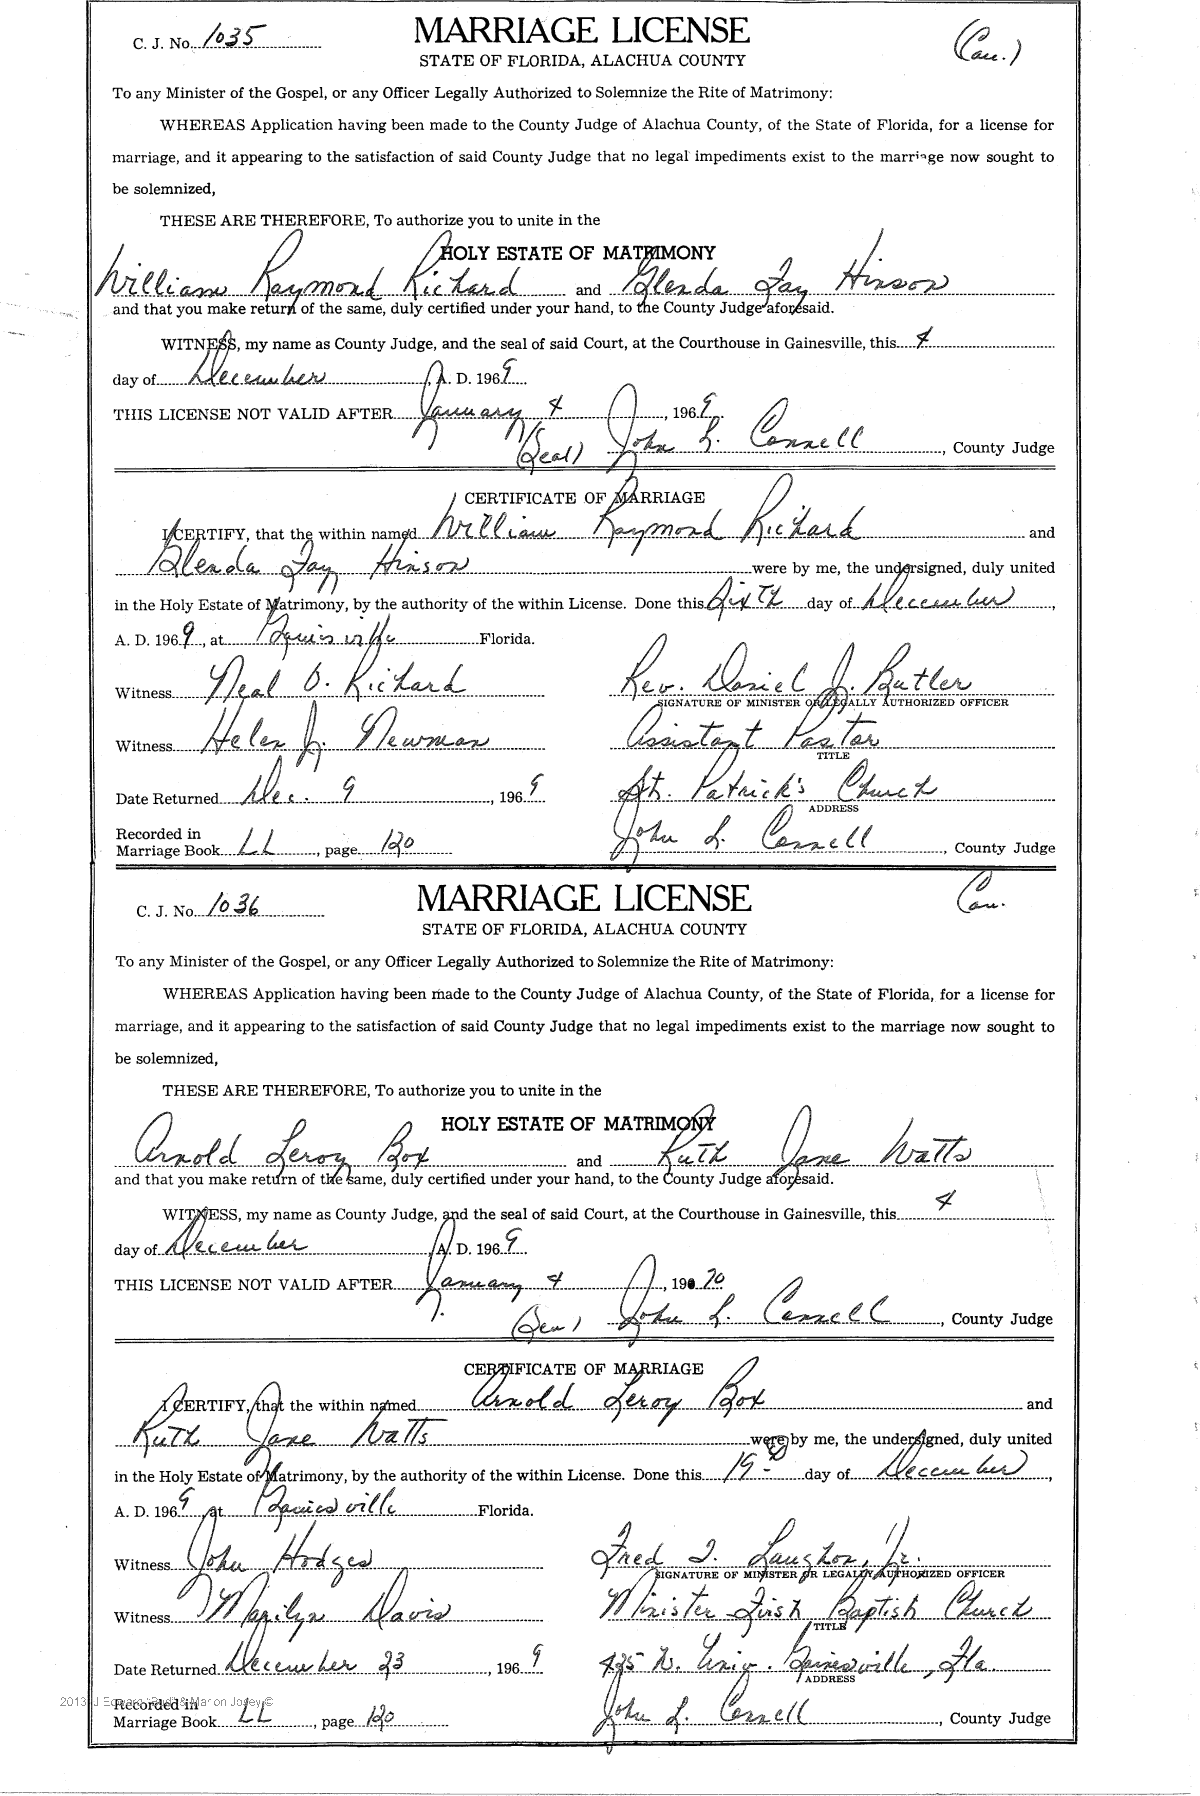 C. J. No. 1035
MARRIAGE LICENSE
(Cau.)
STATE OF FLORIDA, ALACHUA COUNTY
To any Minister of the Gospel, or any Officer Legally Authorized to Solemnize the Rite of Matrimony:
WHEREAS Application having been made to the County Judge of Alachua County, of the State of Florida, for a license for
marriage, and it appearing to the satisfaction of said County Judge that no legal impediments exist to the marriage now sought to
be solemnized,
THESE ARE THEREFORE, To authorize you to unite in the
HOLY ESTATE OF MATRIMONY
William Raymond Richard and Glenda Fay Hinson
and that you make return of the same, duly certified under your hand, to the County Judge aforesaid.
WITNESS, my name as County Judge, and the seal of said Court, at the Courthouse in Gainesville, this 4
day of December, A. D. 1969
THIS LICENSE NOT VALID AFTER January 4, 1969.
(Seal) John L. Connell, County Judge
CERTIFICATE OF MARRIAGE
I CERTIFY, that the within named William Raymond Richard and
Glenda Fay Hinson were by me, the undersigned, duly united
in the Holy Estate of Matrimony, by the authority of the within License. Done this Sixth day of December,
A. D. 1969, at Gainesville Florida.
Witness Neal O. Richard Rev. Daniel J. Butler
SIGNATURE OF MINISTER OR LEGALLY AUTHORIZED OFFICER
Witness Helen J. Newman Assistant Pastor
TITLE
Date Returned Dec. 9, 1969 St. Patrick's Church
ADDRESS
Recorded in
Marriage Book LL, page 120 John L. Connell, County Judge
C. J. No. 1036
MARRIAGE LICENSE
Cau.
STATE OF FLORIDA, ALACHUA COUNTY
To any Minister of the Gospel, or any Officer Legally Authorized to Solemnize the Rite of Matrimony:
WHEREAS Application having been made to the County Judge of Alachua County, of the State of Florida, for a license for
marriage, and it appearing to the satisfaction of said County Judge that no legal impediments exist to the marriage now sought to
be solemnized,
THESE ARE THEREFORE, To authorize you to unite in the
HOLY ESTATE OF MATRIMONY
Arnold Leroy Box and Ruth Jane Watts
and that you make return of the same, duly certified under your hand, to the County Judge aforesaid.
WITNESS, my name as County Judge, and the seal of said Court, at the Courthouse in Gainesville, this 4
day of December, A. D. 1969
THIS LICENSE NOT VALID AFTER January 4, 1970
(Seal) John L. Connell, County Judge
CERTIFICATE OF MARRIAGE
I CERTIFY, that the within named Arnold Leroy Box and
Ruth Jane Watts were by me, the undersigned, duly united
in the Holy Estate of Matrimony, by the authority of the within License. Done this 19 day of December,
A. D. 1969, at Gainesville Florida.
Witness John Hodges Fred T. Laughon, Jr.
SIGNATURE OF MINISTER OR LEGALLY AUTHORIZED OFFICER
Witness Marilyn Davis Minister First Baptist Church
TITLE
Date Returned December 23, 1969 425 W. Univ. Gainesville, Fla.
ADDRESS
Recorded in
Marriage Book LL, page 120 John L. Connell, County Judge